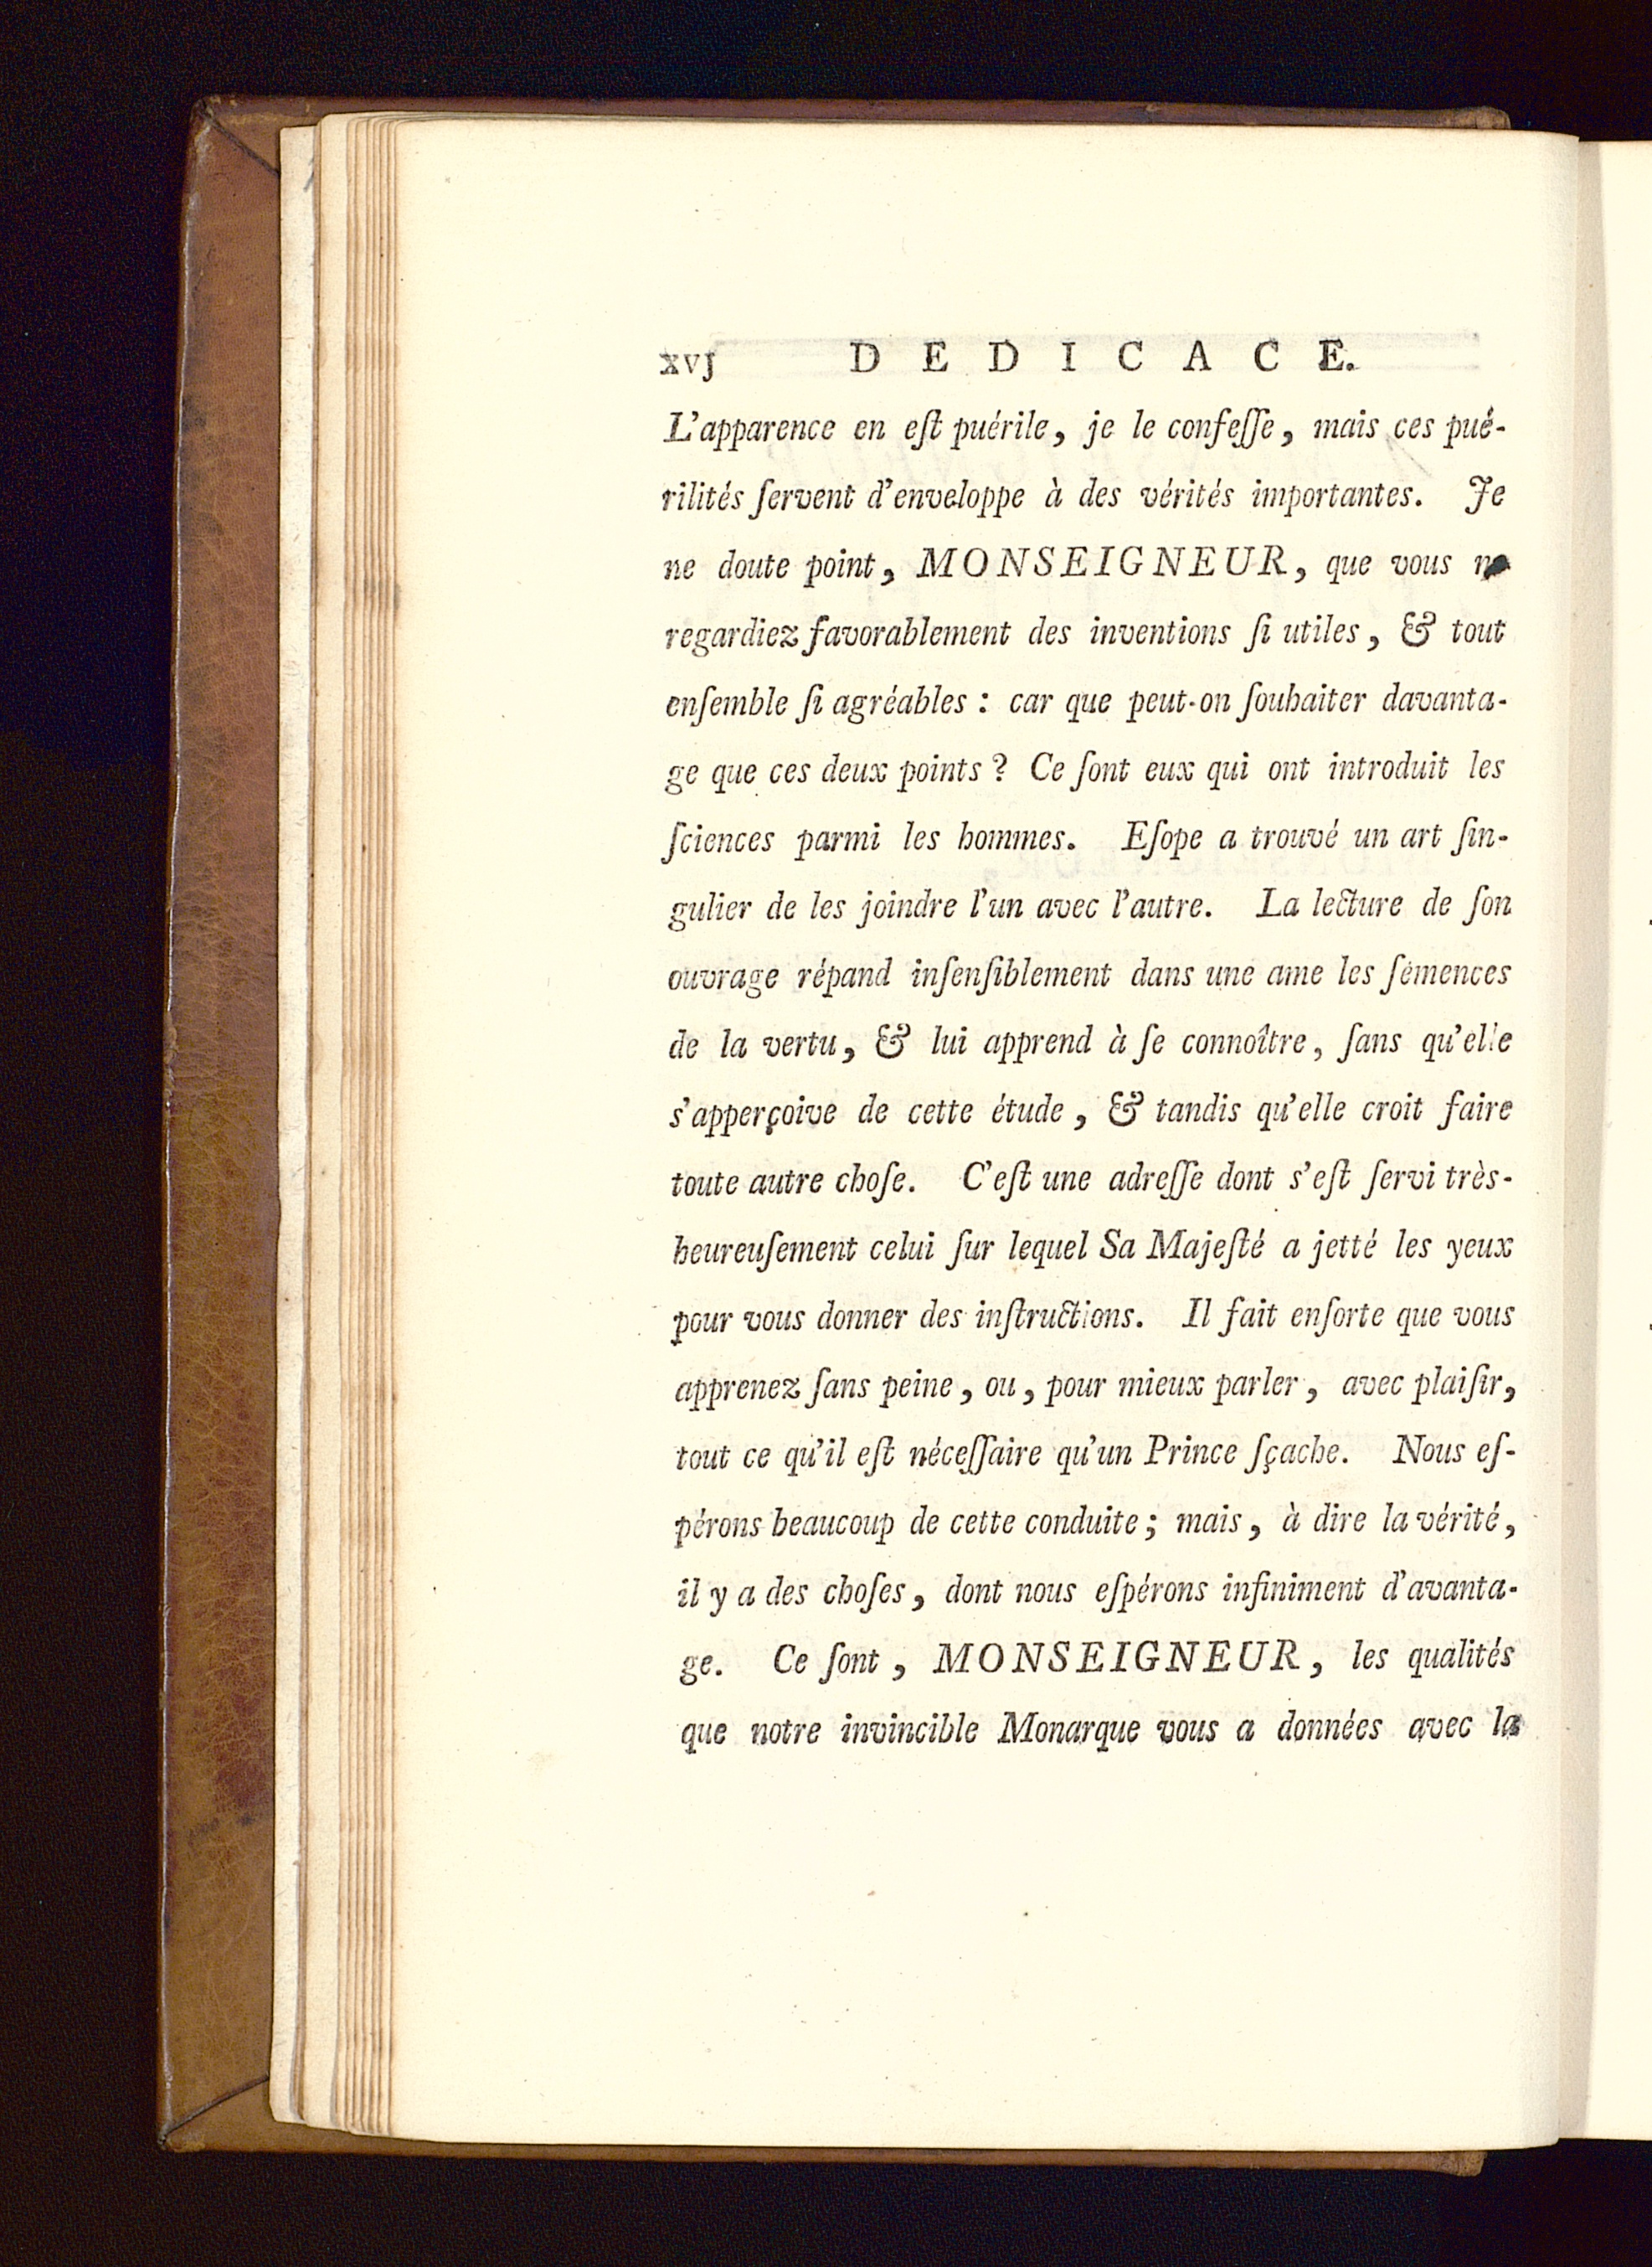 xvj DEDICACE.
L'apparence en eſt puérile, je le confeſſe, mais ces pué-
rilités ſervent d'enveloppe à des vérités importantes. Je
ne doute point, MONSEIGNEUR, que vous ne
regardiez favorablement des inventions ſi utiles, & tout
enſemble ſi agréables : car que peut-on ſouhaiter davanta-
ge que ces deux points ? Ce ſont eux qui ont introduit les
ſciences parmi les hommes. Eſope a trouvé un art ſin-
gulier de les joindre l'un avec l'autre. La lecture de ſon
ouvrage répand inſenſiblement dans une ame les ſémences
de la vertu, & lui apprend à ſe connoître, ſans qu'elle
s'apperçoive de cette étude, & tandis qu'elle croit faire
toute autre choſe. C'eſt une adreſſe dont s'eſt ſervi très-
heureuſement celui ſur lequel Sa Majeſté a jetté les yeux
pour vous donner des inſtructions. Il fait enſorte que vous
apprenez ſans peine, ou, pour mieux parler, avec plaiſir,
tout ce qu'il eſt néceſſaire qu'un Prince ſçache. Nous eſ-
pérons beaucoup de cette conduite; mais, à dire la vérité,
il y a des choſes, dont nous eſpérons infiniment d'avanta-
ge. Ce ſont, MONSEIGNEUR, les qualités
que notre invincible Monarque vous a données avec la